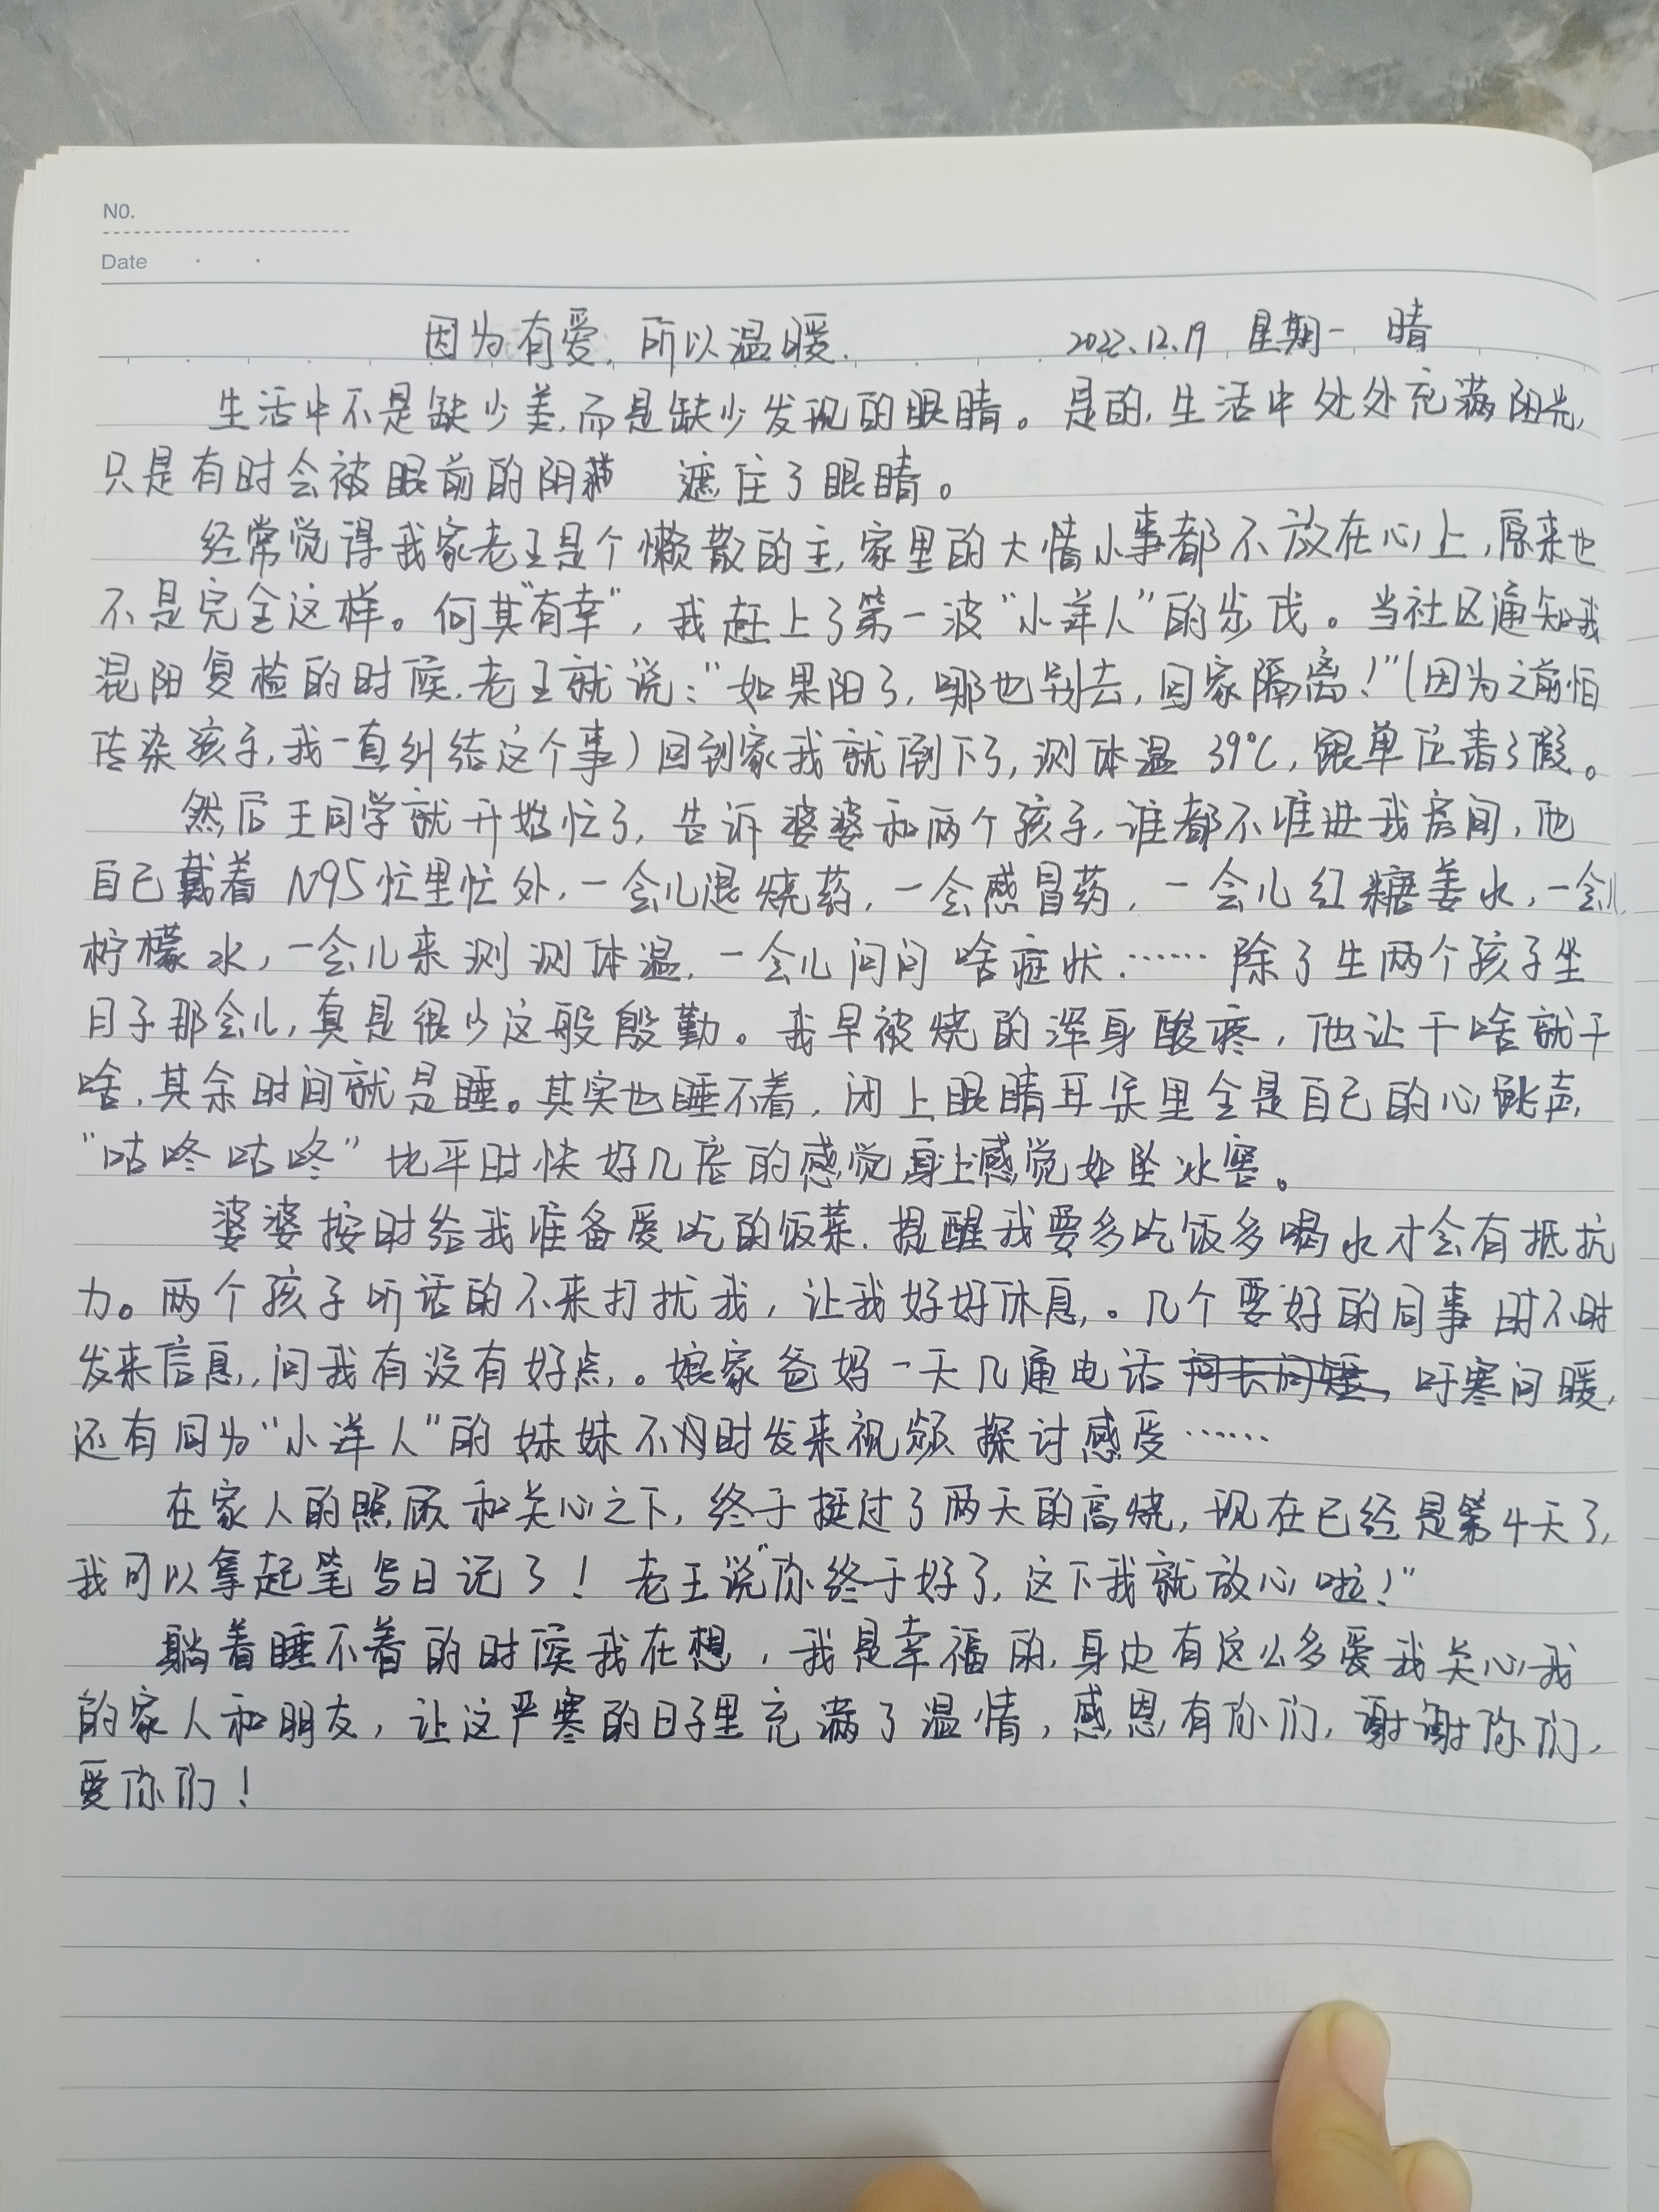 NO.
Date
因为有爱,所以温暖. 2022.12.19 星期一 晴
生活中不是缺少美,而是缺少发现的眼睛。是的,生活中处处充满阳光,
只是有时会被眼前的阴 遮住了眼睛。
经常觉得我家老王是个懒散的主,家里的大情小事都不放在心上,原来也
不是完全这样。何其"有幸",我赶上了第一波"小洋人"的步伐。当社区通知我
混阳复检的时候,老王就说:"如果阳了,哪也别去,回家隔离!"(因为之前怕
传染孩子,我一直纠结这个事)回到家我就倒下了,测体温 39℃,跟单位请了假。
然后王同学就开始忙了,告诉婆婆和两个孩子,谁都不准进我房间,他
自己戴着 N95忙里忙外,一会儿退烧药,一会感冒药,一会儿红糖姜水,一会儿
柠檬水,一会儿来测测体温,一会儿问问啥症状……除了生两个孩子坐
月子那会儿,真是很少这般殷勤。我早被烧的浑身酸疼,他让干啥就干
啥,其余时间就是睡。其实也睡不着,闭上眼睛耳朵里全是自己的心跳声,
"咕咚咕咚"比平时快好几倍的感觉身上感觉如坠冰窖。
婆婆按时给我准备爱吃的饭菜,提醒我要多吃饭多喝水才会有抵抗
力。两个孩子听话的不来打扰我,让我好好休息。几个要好的同事时不时
发来信息,问我有没有好点。娘家爸妈一天几通电话 吁寒问暖,
还有同为"小洋人"的妹妹不时发来视频探讨感受……
在家人的照顾和关心之下,终于挺过了两天的高烧,现在已经是第4天了,
我可以拿起笔写日记了!老王说"你终于好了,这下我就放心啦!"
躺着睡不着的时候我在想,我是幸福的,身边有这么多爱我关心我
的家人和朋友,让这严寒的日子里充满了温情,感恩有你们,谢谢你们,
爱你们!